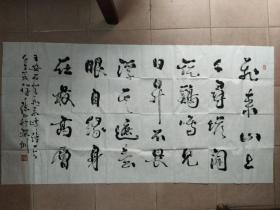 飛來山上
千尋塔聞
說鷄鳴見
日昇不畏
浮雲遮望
眼自緣身
在最高層
王安石登飛來峰詩